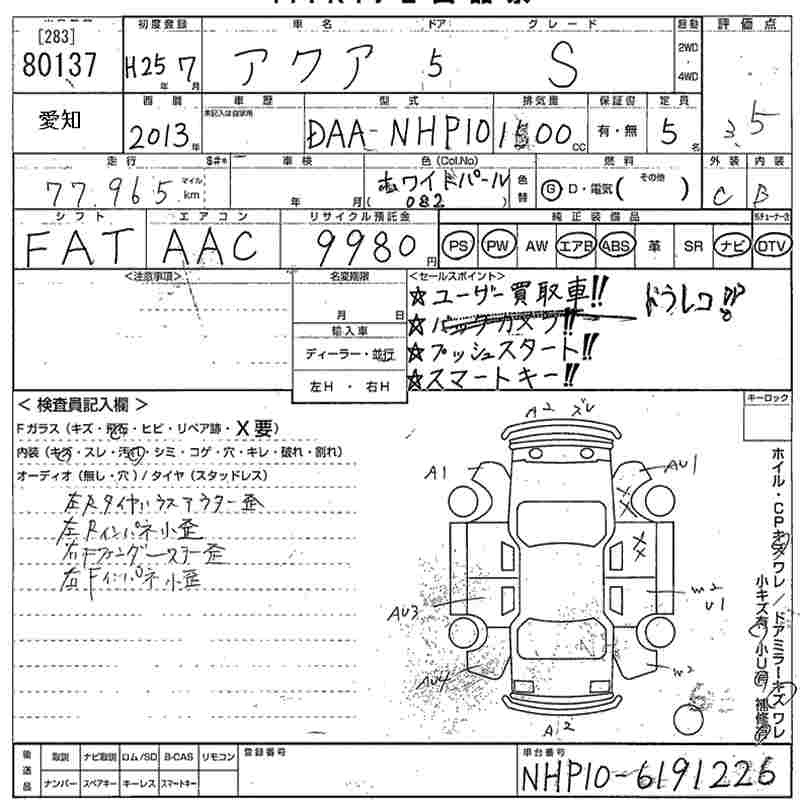 [283]
80137
愛知
初度登録 車名 ドア グレード 駆動 評価点
H25年 7月 アクア 5 S 2WD・4WD 3.5
西暦 車歴 型式 排気量 保証書 定員
未記入は自家用
2013年 DAA-NHP10 1500cc 有・無 5名
走行 $#* 車検 色(Col.No) 燃料 外装 内装
77.965 マイル km 年 月 ホワイトパール 082 色替 G D・電気( その他 ) C B
シフト エアコン リサイクル預託金 純正装備品
FAT AAC 9980円 PS PW AW エアB ABS 革 SR ナビ DTV
<注意事項> 名変期限 <セールスポイント>
月 日
輸入車
ディーラー・並行
左H・右H
☆ユーザー買取車!! ドラレコ!!
☆バックカメラ!!
☆プッシュスタート!!
☆スマートキー!!
<検査員記入欄> キーロック
Fガラス(キズ・飛石・ヒビ・リペア跡・X要)
内装(キズ・スレ・汚れ・シミ・コゲ・穴・キレ・破れ・割れ)
オーディオ(無し・穴)/タイヤ(スタッドレス)
左Rタイヤハウスアウター歪
左Rインパネ小歪
右Fフェンダーステー歪
右Fインパネ小歪
A2 ズレ
A1 AU1
XX
XX
AU3 W2 U1
AU4 W2
A2
ホイル・CPキズ・ワレ/ドアミラーキズ・ワレ
小キズ有 小U有 補修有
後送品 取説 ナビ取説 ロム/SD B-CAS リモコン 登録番号 車台番号
ナンバー スペアキー キーレス スマートキー NHP10-6191226